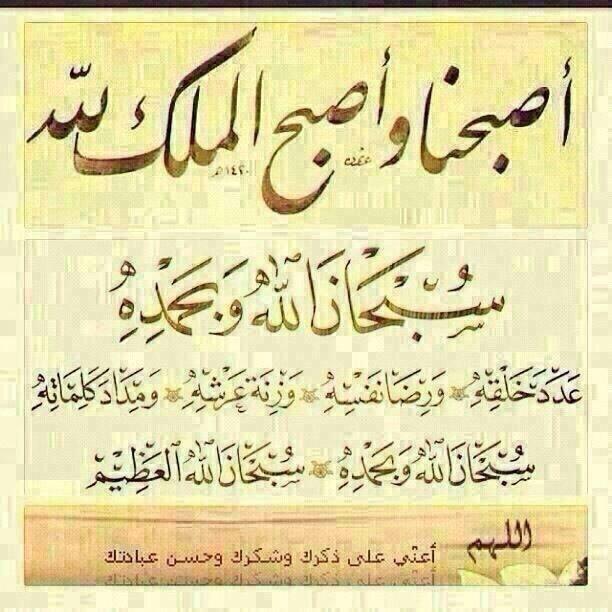 أصبحنا وأصبح الملك لله
١٤٢٠هـ
سُبْحَانَ اللهِ وَبِحَمْدِهِ
عَدَدَ خَلْقِهِ وَرِضَا نَفْسِهِ وَزِنَةَ عَرْشِهِ وَمِدَادَ كَلِمَاتِهِ
سُبْحَانَ اللهِ وَبِحَمْدِهِ سُبْحَانَ اللهِ العَظِيْمِ
اللهم
أعنّي على ذكرك وشكرك وحسن عبادتك